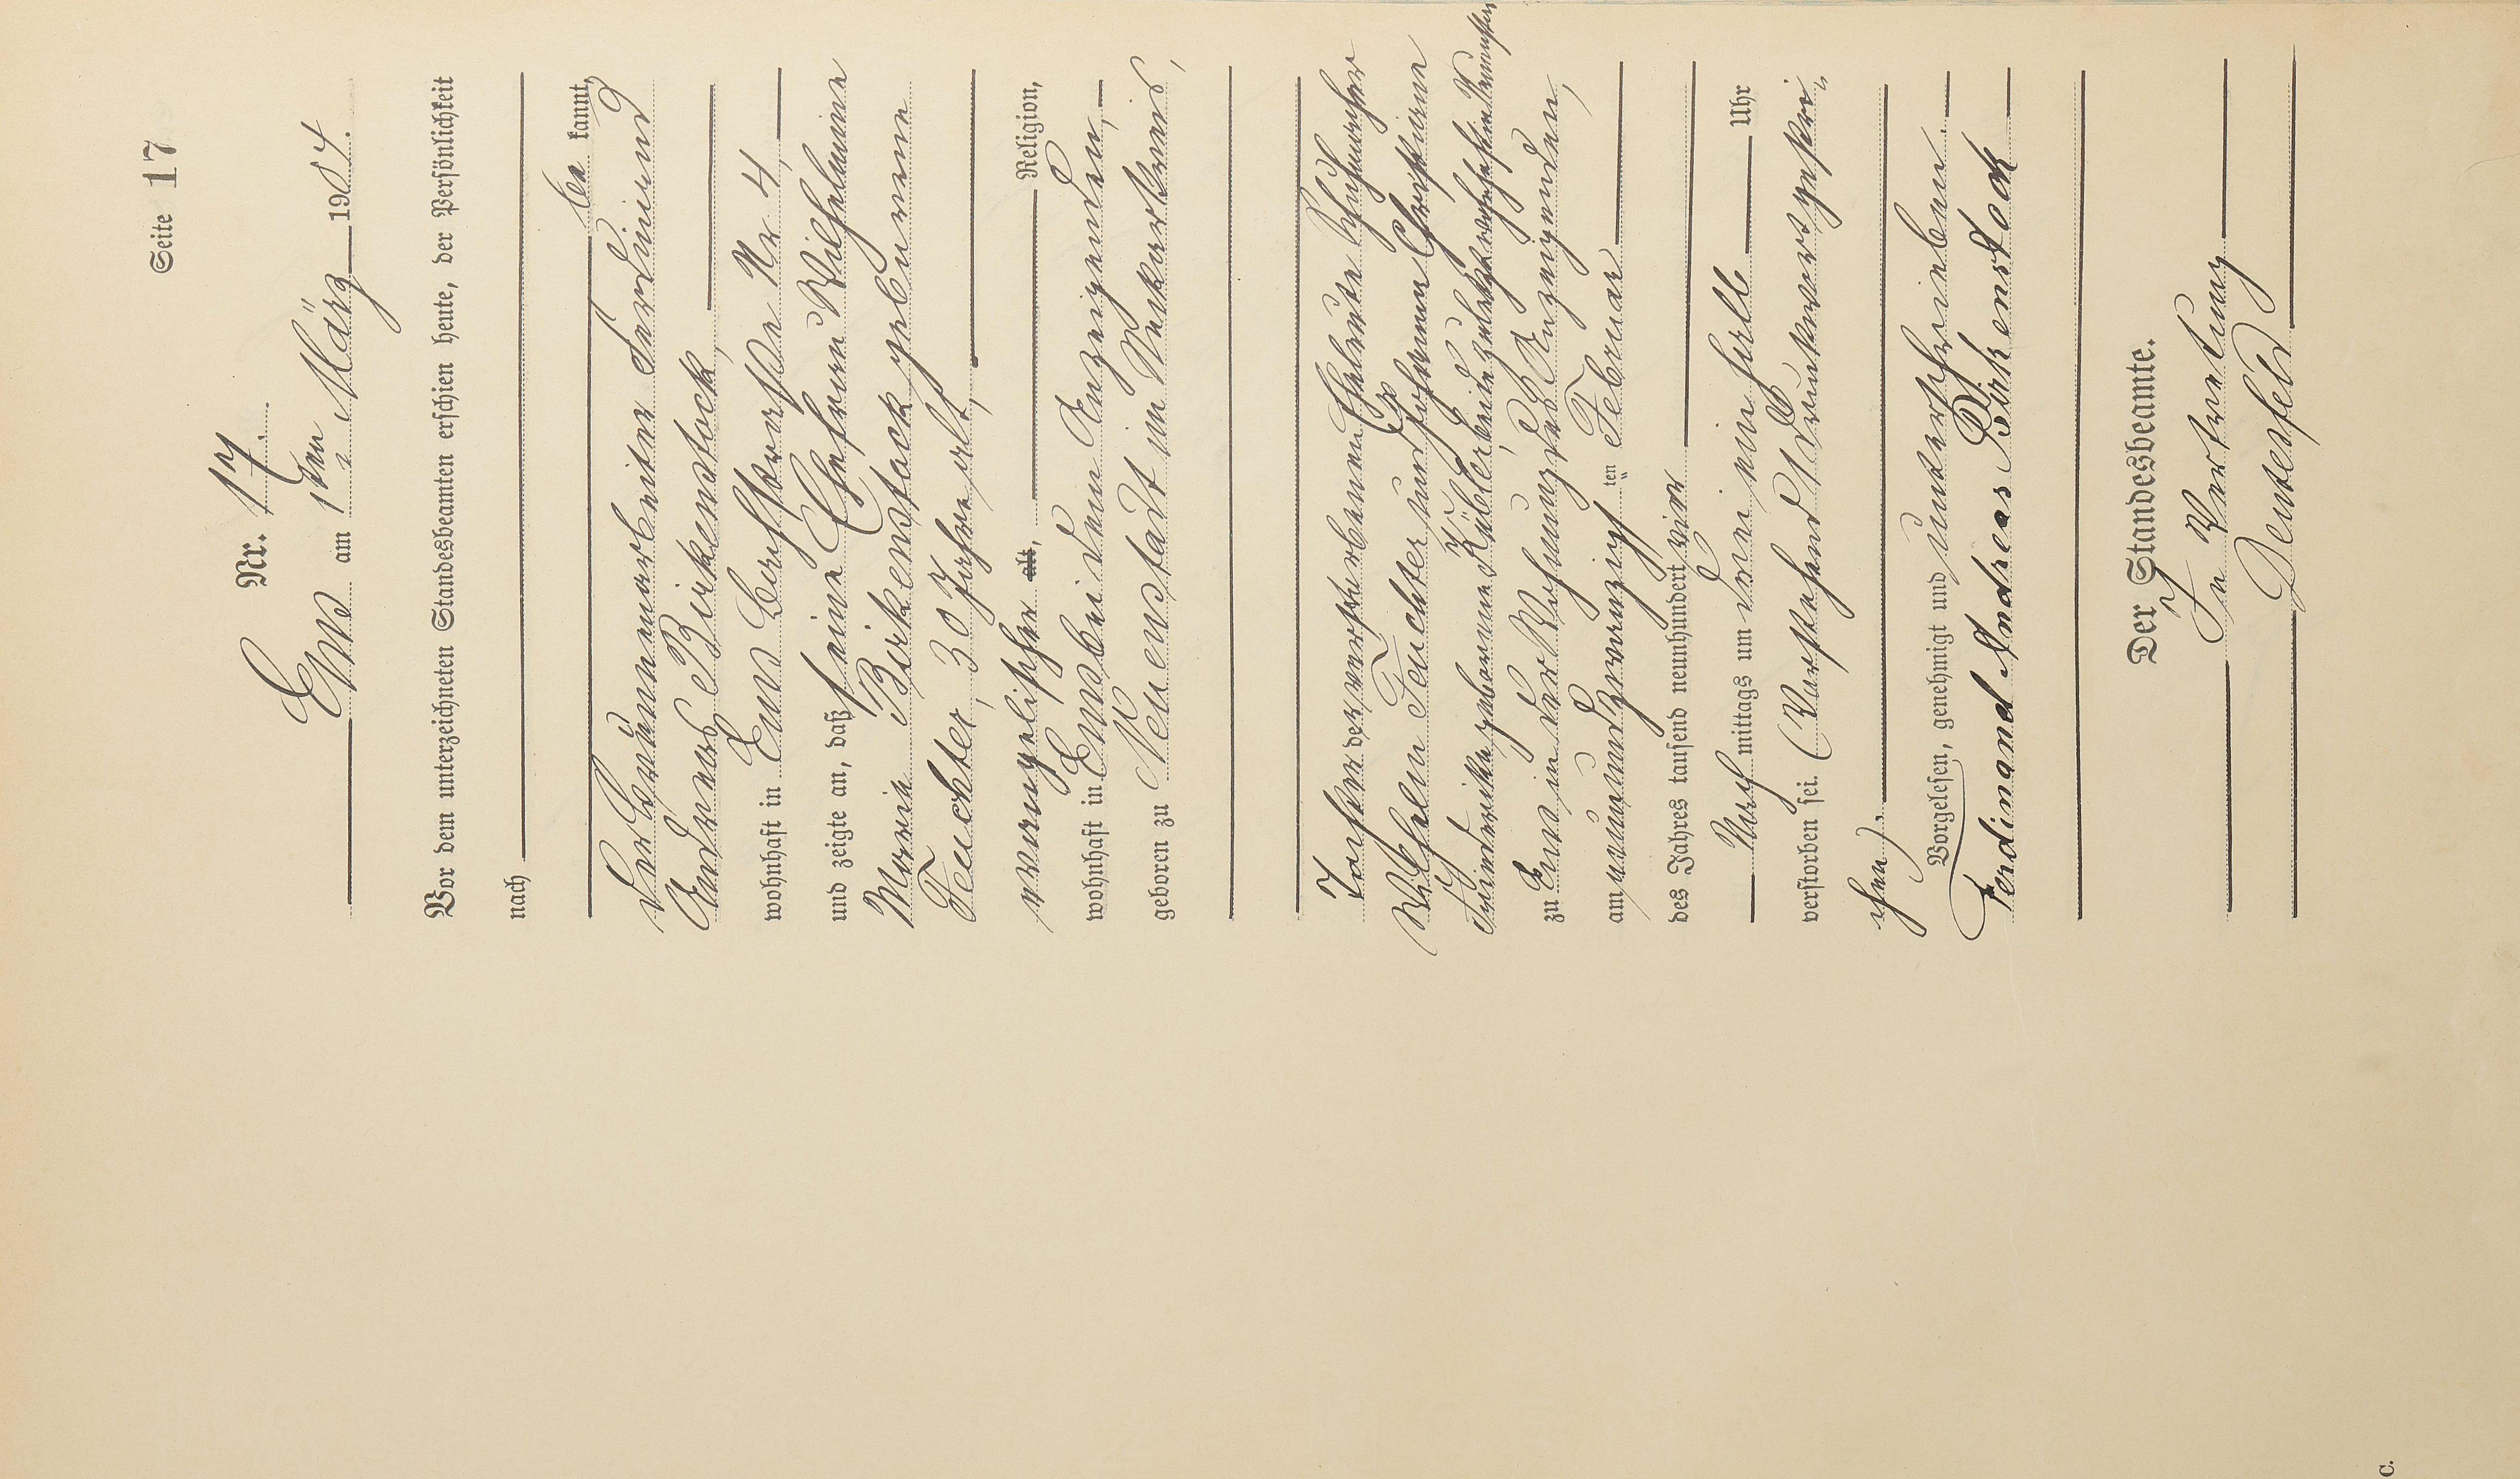 Seite 17
Nr. 17.
Ems am 1ten März 1904.
Vor dem unterzeichneten Standesbeamten erschien heute, der Persönlichkeit
nach
be kannt,
der Brunnenarbeiter Ferdinand
Andreas Birkenstock,
wohnhaft in Ems Bachstraße Nr 4,
und zeigte an, daß seine Ehefrau Wilhelmine
Maria Birkenstock geborene
Feuchter, 30 Jahre alt,
evangelischer alt, Religion,
wohnhaft in Ems bei dem Anzeigenden,
geboren zu Neuenstadt im Neckarkreis,
Tochter der verstorbenen Eheleute Schuhmacher
Wilhelm Feuchter und Johanna Christiane
Friederike geborene Kübler, beide zuletzt wohnhaft in
zu Ems in der Wohnung des Anzeigenden,
am neunundzwanzigsten Februar
des Jahres tausend neunhundert vier
Nach mittags um drei ein halb Uhr
verstorben sei. (Vorstehend 1 Druckwort gestri-
chen).
Vorgelesen, genehmigt und unterschrieben.
Ferdinand Andreas Birkenstock
Der Standesbeamte.
In Vertretung
C.